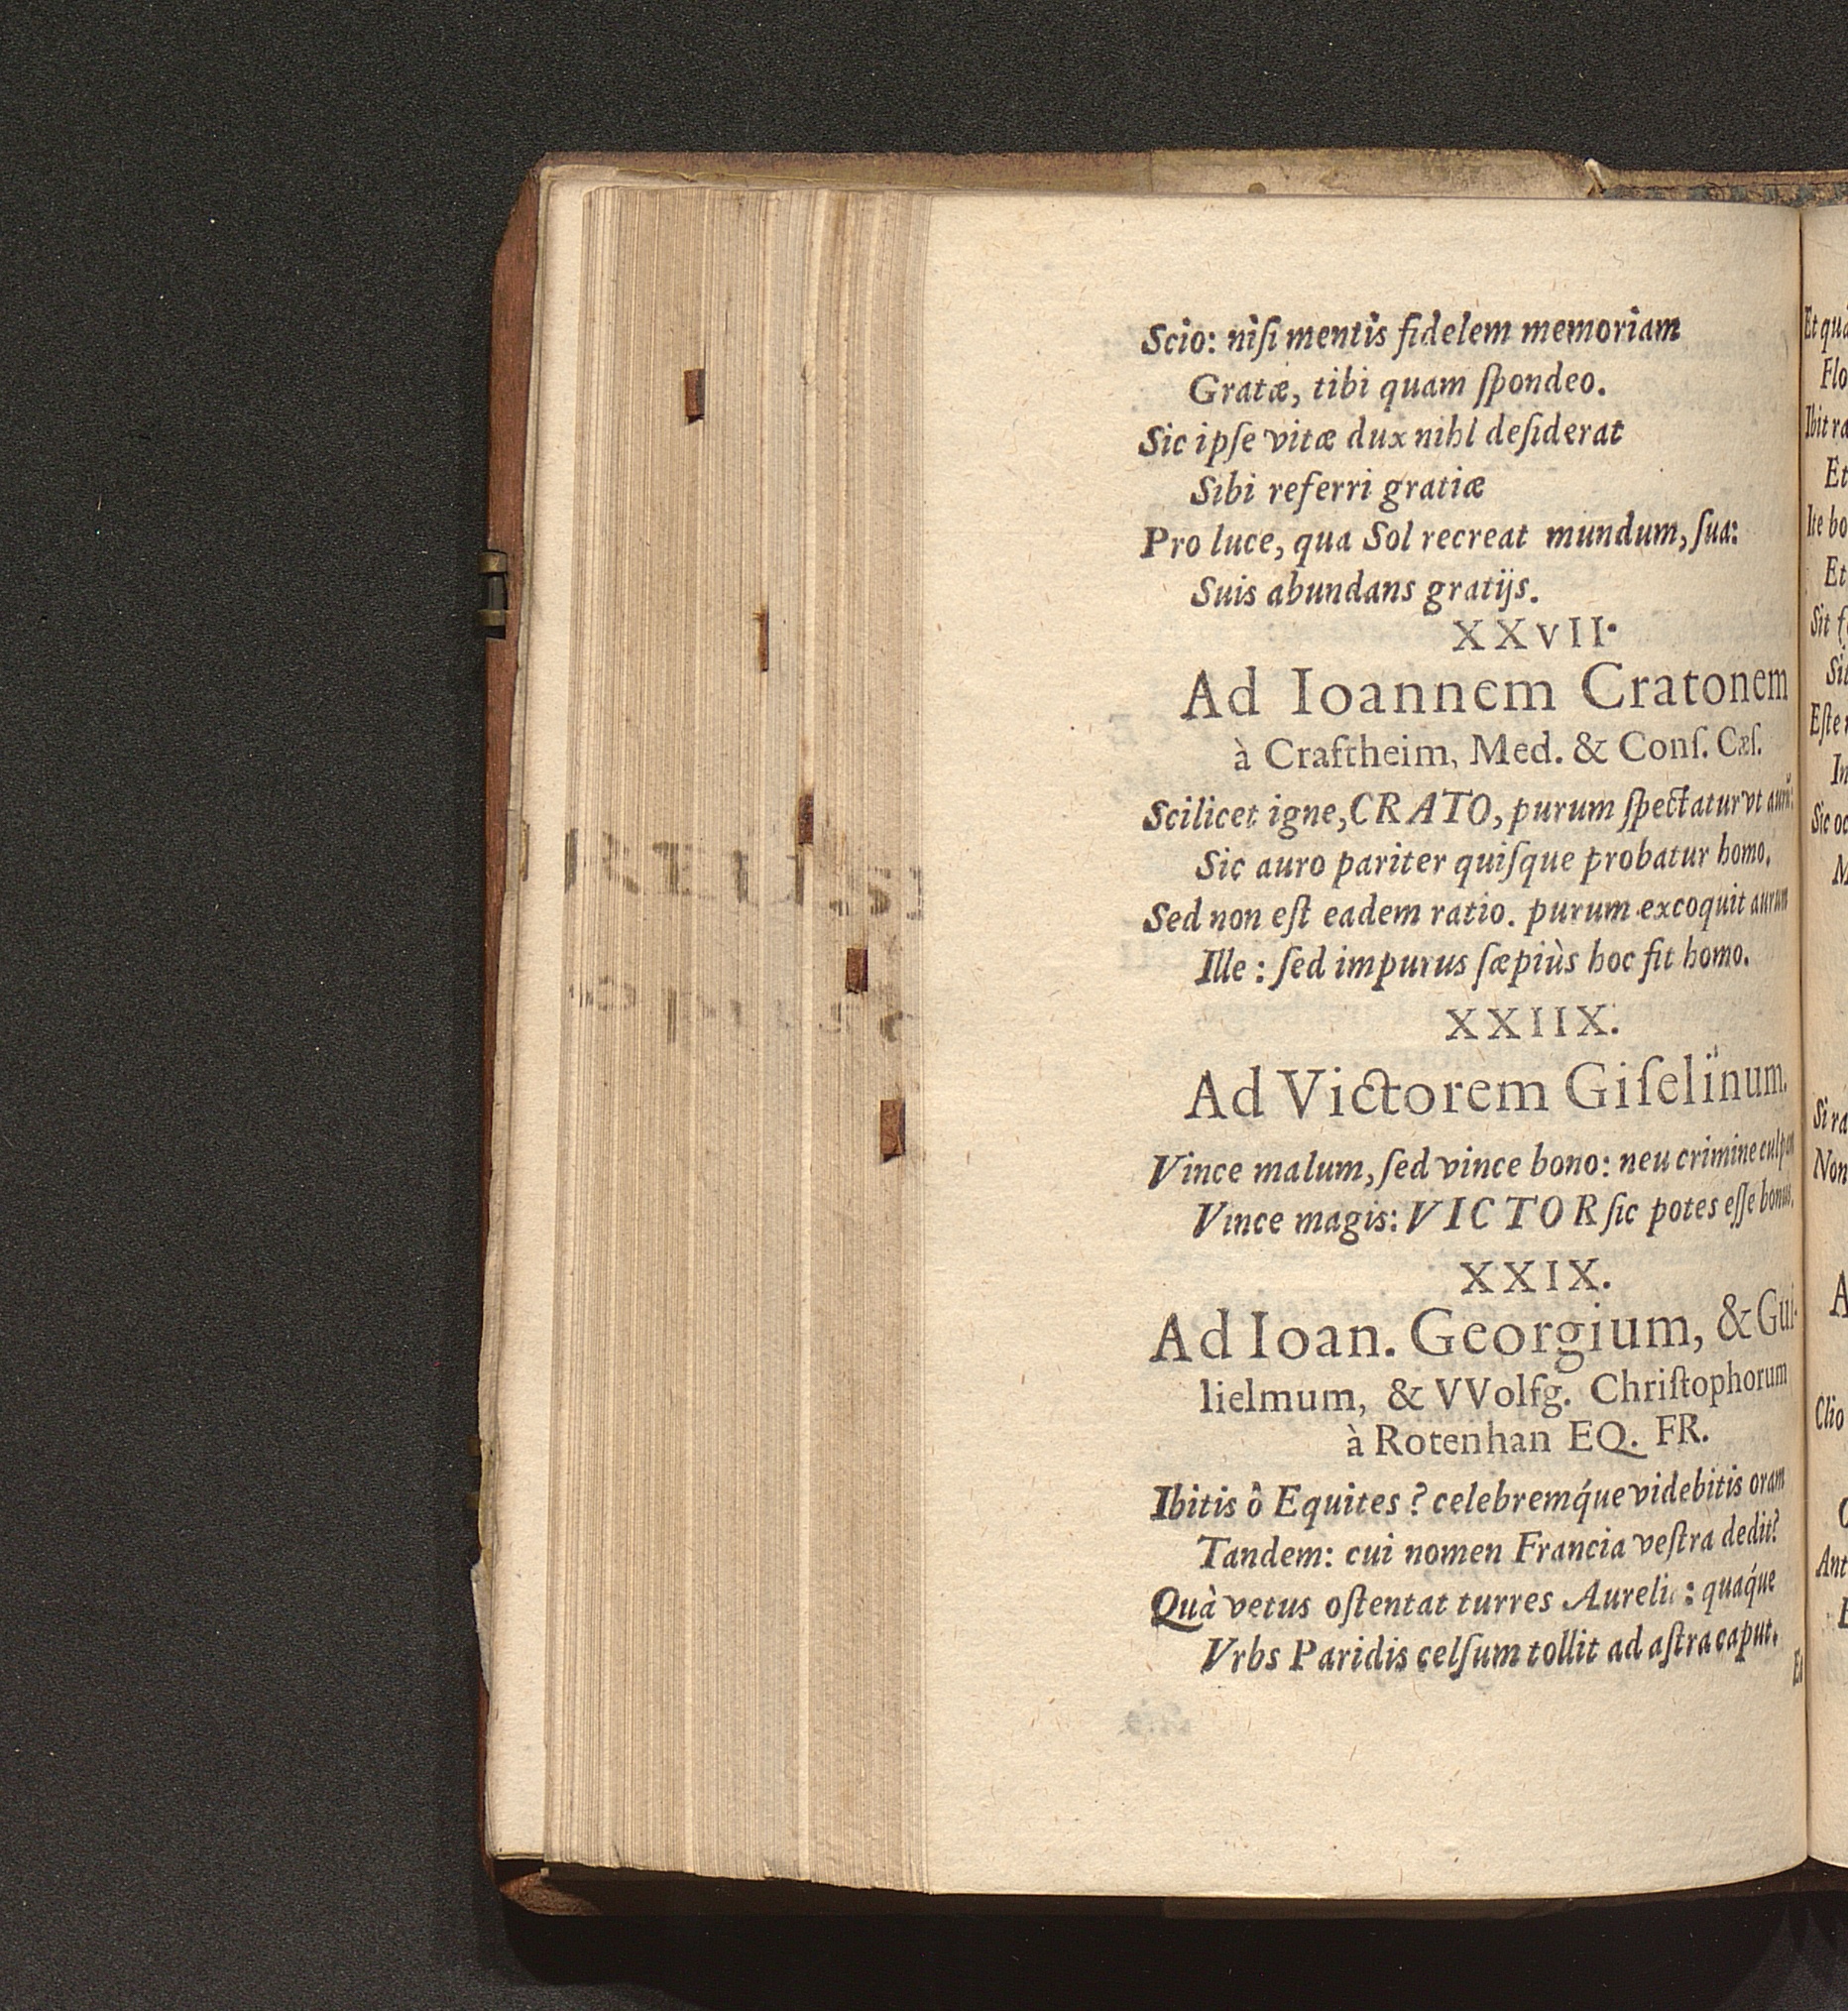 Scio: niſi mentis fidelem memoriam
Gratæ, tibi quam ſpondeo.
Sic ipſe vitæ dux nihl deſiderat
Sibi referri gratiæ
Pro luce, qua Sol recreat mundum, ſua:
Suis abundans gratijs.
XXVII.
Ad Ioannem Cratonem
à Craftheim, Med. & Conſ. Cæſ.
Scilicet igne, CRATO, purum ſpectatur vt aurũ:
Sic auro pariter quiſque probatur homo.
Sed non eſt eadem ratio. purum excoquit aurum
Ille: ſed impurus ſæpiùs hoc fit homo.
XXIIX.
Ad Victorem Giſelinum.
Vince malum, ſed vince bono: neu crimine culpam
Vince magis: VICTOR ſic potes eſſe bonus.
XXIX.
Ad Ioan. Georgium, & Gui-
lielmum, & VVolfg. Chriſtophorum
à Rotenhan EQ. FR.
Ibitis ô Equites? celebremq́ue videbitis oram
Tandem: cui nomen Francia veſtra dedit?
Quà vetus oſtentat turres Aureli: quaq́ue
Vrbs Paridis celſum tollit ad aſtra caput.
Et
Et qua
Flo
Ibit ra
Et
Ite bo
Et
Sit f
Sit
Eſte
In
Sic oc
M
Si ra
Non
A
Clio
Ant